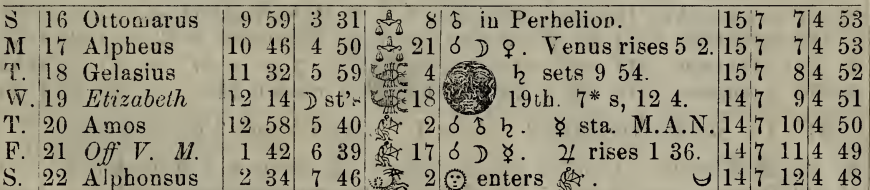 S 16 Ottomarus 9 59 3 31 8 ♁ in Perhelion. 15 7 7 4 53
M 17 Alpheus 10 46 4 50 21 ☌ ☽ ♀. Venus rises 5 2. 15 7 7 4 53
T. 18 Gelasius 11 32 5 59 4 ♄ sets 9 54. 15 7 8 4 52
W. 19 Etizabeth 12 14 ☽ st's 18 19th. 7* s, 12 4. 14 7 9 4 51
T. 20 Amos 12 58 5 40 2 ☌ ♁ ♄. ☿ sta. M.A.N. 14 7 10 4 50
F. 21 Off V. M. 1 42 6 39 17 ☌ ☽ ☿. ♃ rises 1 36. 14 7 11 4 49
S. 22 Alphonsus 2 34 7 46 2 ☉ enters ♐. 14 7 12 4 48